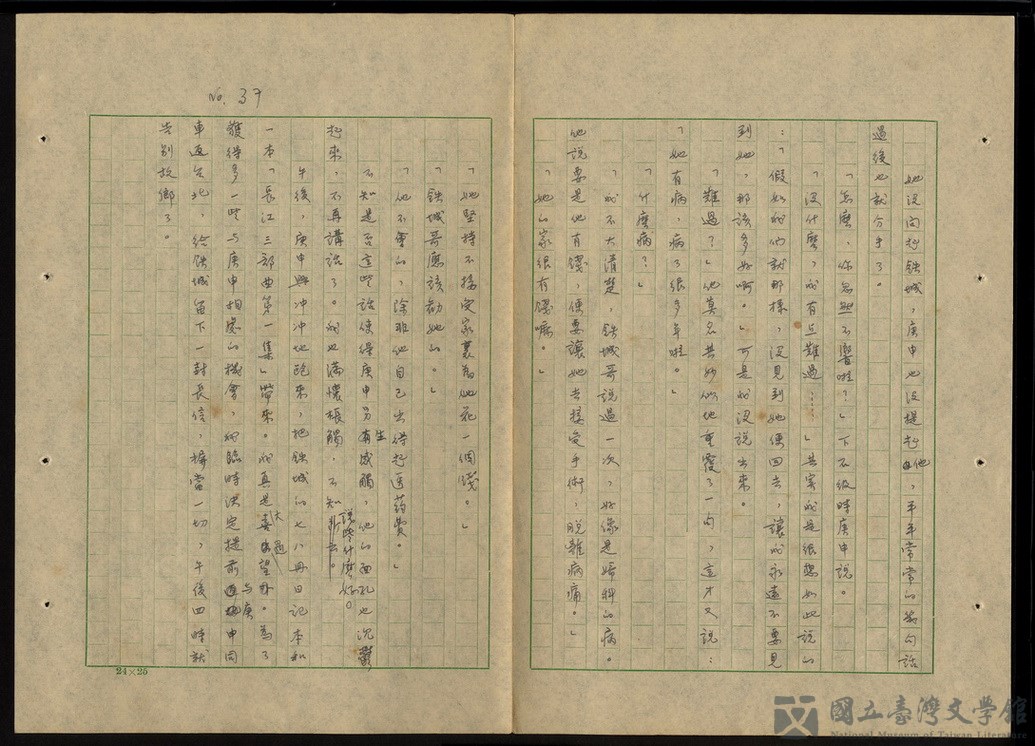 她沒問起鉄城，庚申也沒提起他，平平常常的幾句話
過後也就分手了。
「怎麼，你怎麼不響啦？」下不級時庚申說。
「沒什麼，我有点難過……」其實我是很想如此說的
：「假如我們就那樣，沒見到她便回去，讓我永遠不要見
到她，那該多好啊。」可是我沒說出來。
「難過？」他莫名其妙似地重覆了一句，這才又說：
「她有病，病了很多年啦。」
「什麼病？」
「我不大清楚，鉄城哥說過一次，好像是婦科的病。
他說要是他有錢，便要讓她去接受手術，脫離病痛。」
「她的家很有錢嘛。」
No. 37
「她堅持不接受家裏為她花一個錢。」
「鉄城哥應該勸她的。」
「他不會的，除非他自己出得起医药費。」
不知是否這些話使得庚申另生感觸，他的面孔也沉鬱
起來，不再講話了。我也滿懷根觸，不知說些什麼好。
午後，庚申興冲冲地跑來，把鉄城的七八冊日記本和
一本「長江三部曲第一集」帶來。我真是大喜過望。為了
獲得多一些与庚申相處的機會，我臨時決定提前与庚申同
車返台北，給鉄城留下一封長信，摒當一切，午後四時就
告別故鄉了。
24×25
國立臺灣文學館
National Museum of Taiwan Literature